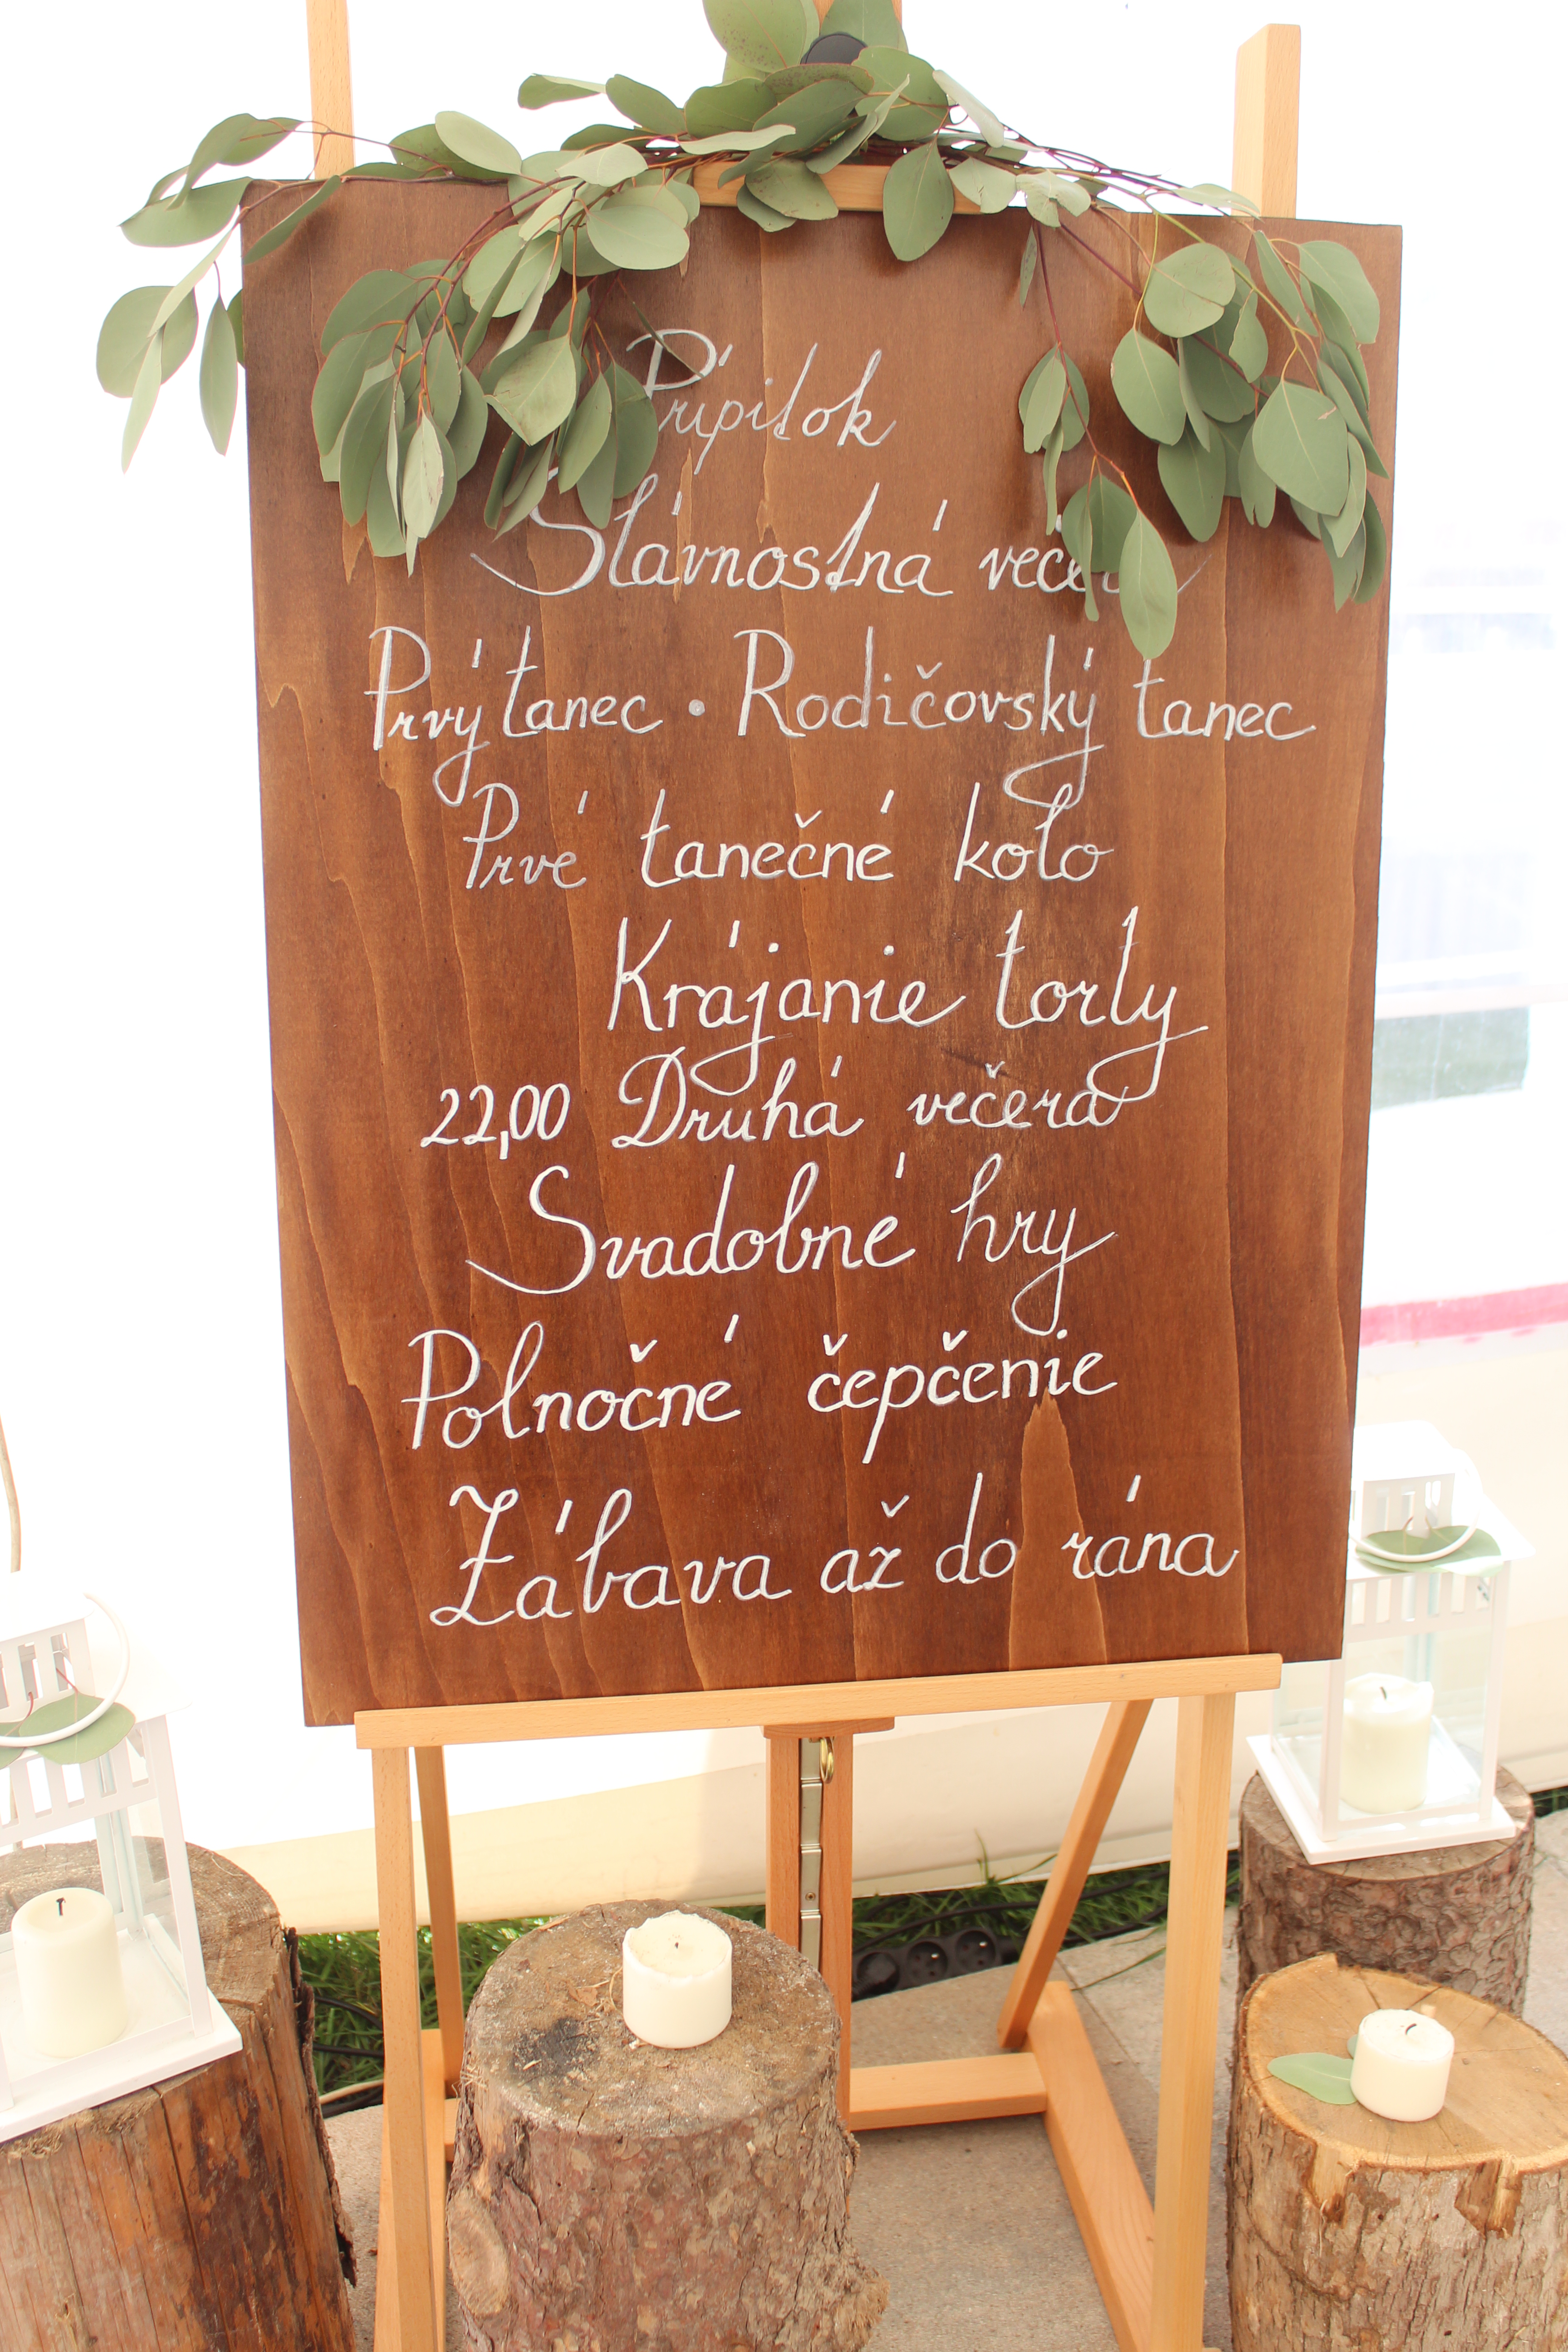 Prípitok
Slávnostná večera
Prvý tanec • Rodičovský tanec
Prvé tanečné kolo
Krájanie torty
22,00 Druhá večera
Svadobné hry
Polnočné čepčenie
Zábava až do rána